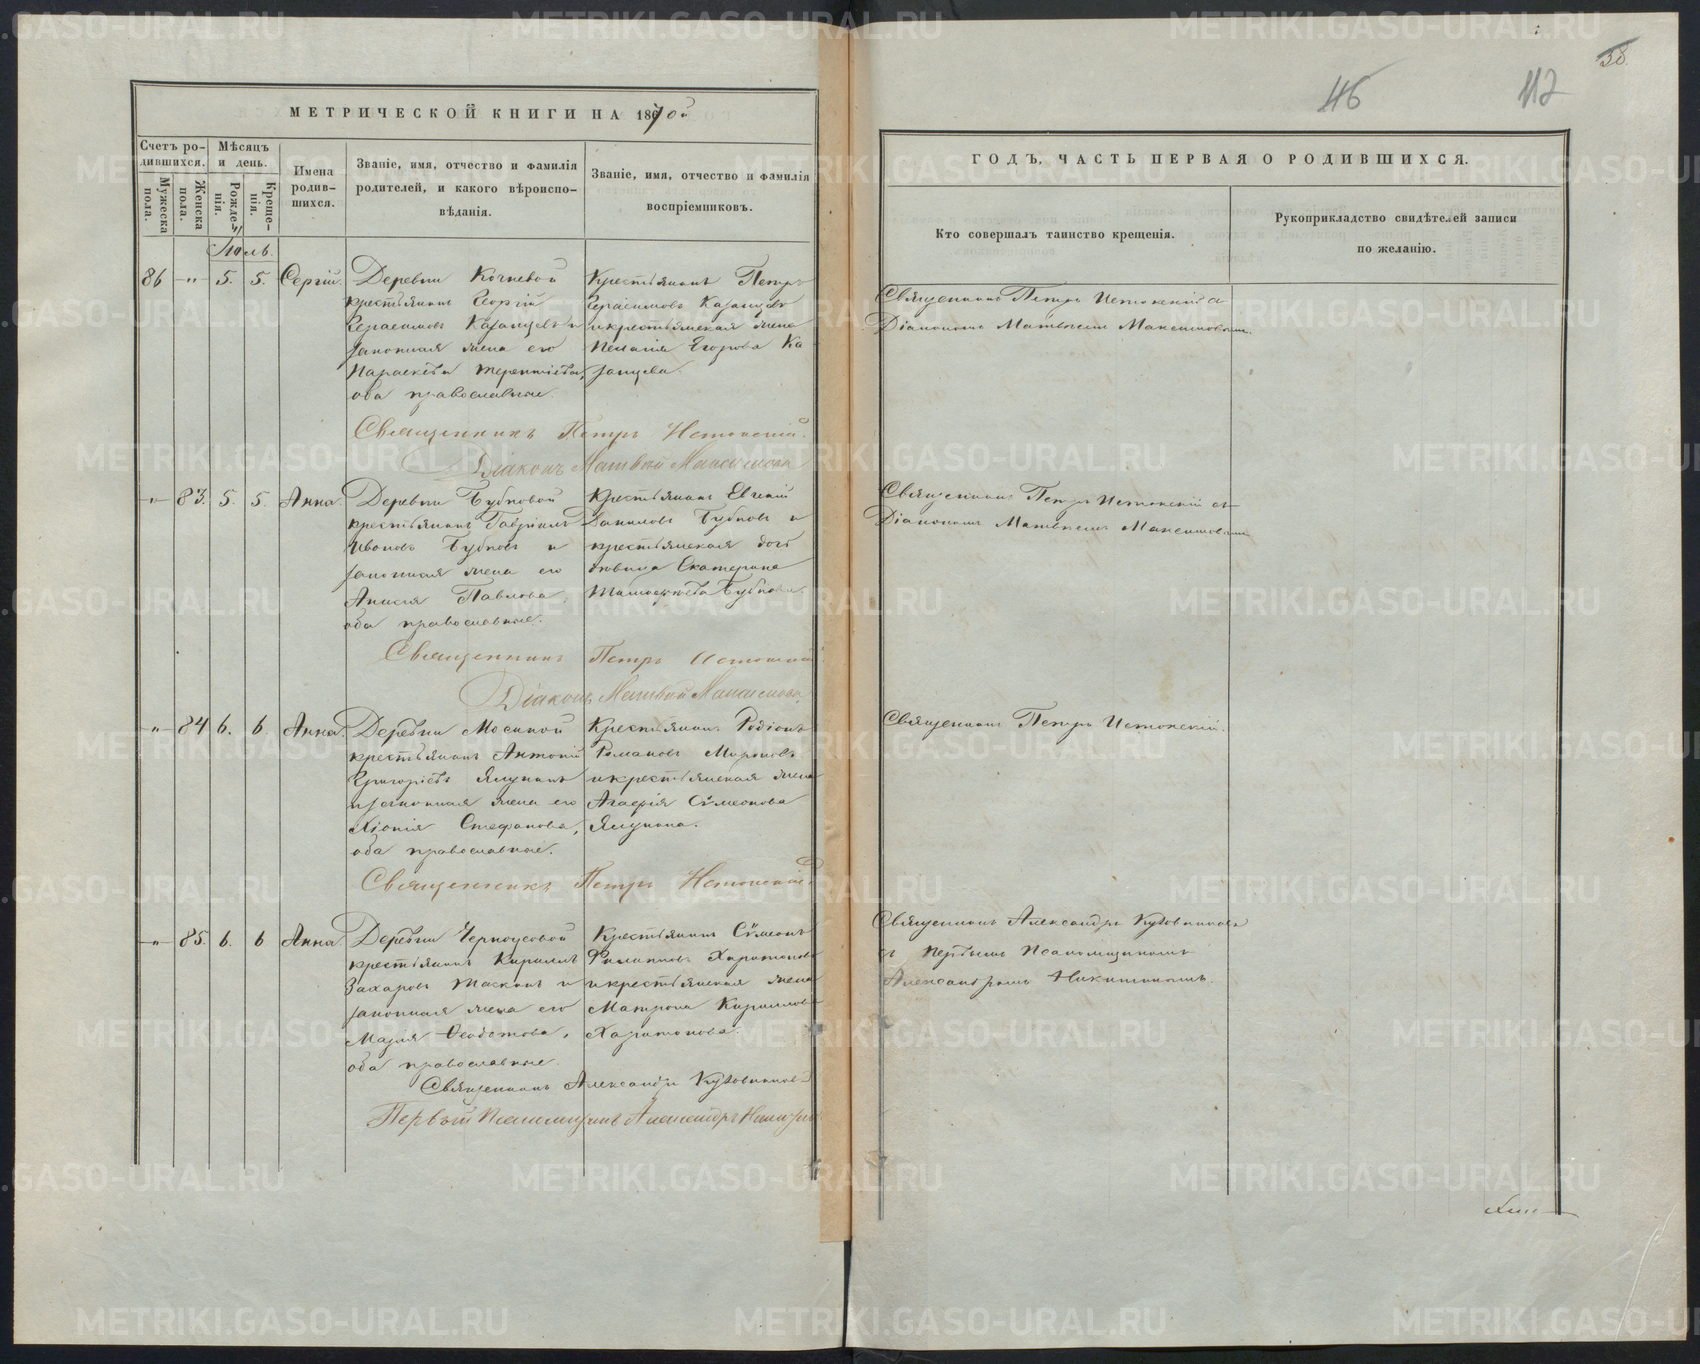 58
46
112
МЕТРИЧЕСКОЙ КНИГИ НА 1870й
Счетъ родившихся.
Мѣсяцъ и день.
Имена родившихся.
Званіе, имя, отчество и фамилія родителей, и какого вѣроисповѣданія.
Званіе, имя, отчество и фамилія воспріемниковъ.
Мужеска пола.
Женска пола.
Рожденія.
Крещенія.
ГОДЪ, ЧАСТЬ ПЕРВАЯ О РОДИВШИХСЯ.
Кто совершалъ таинство крещенія.
Рукоприкладство свидѣтелей записи по желанію.
Іюль.
86 -"- 5. 5. Сергій.
Деревни Кочневой
крестьянинъ Георгій
Герасимовъ Казанцевъ и
законная жена его
Параскева Терентіева,
оба православные.
Крестьянинъ Петръ
Герасимовъ Казанцевъ
и крестьянская жена
Пелагія Егорова Ка
занцева.
Священникъ Петръ Истокскій с
Діакономъ Матвѣемъ Максимовымъ.
Священникъ Петръ Истокскій.
Діаконъ Матвѣй Максимовъ
-"- 83. 5. 5. Анна.
Деревни Бубновой
крестьянинъ Гавріилъ
Ивановъ Бубновъ и
законная жена его
Анисія Павлова,
оба православные.
Крестьянинъ Евгеній
Даниловъ Бубновъ и
крестьянская дочь
дѣвица Екатерина
Тимофеева Бубнова.
Священникъ Петръ Истокскій съ
Діакономъ Матвѣемъ Максимовымъ
Священникъ Петръ Истокскій
Діаконъ Матвѣй Максимовъ
-"- 84 6. 6. Анна.
Деревни Мосиной
крестьянинъ Антоній
Григорьевъ Ялунинъ
и законная жена его
Хіонія Стефанова,
оба православные.
Крестьянинъ Родіонъ
Романовъ Мироновъ
и крестьянская жена
Агафія Сѵмеонова
Ялунина.
Священникъ Петръ Истокскій.
Священникъ Петръ Истокскій.
-"- 85. 6. 6 Анна.
Деревни Черноусовой
крестьянинъ Кириллъ
Захаровъ Таскинъ и
законная жена его
Марія Ѳеодотова,
оба православные.
Крестьянинъ Сѵмеонъ
Филипповъ Харитоновъ
и крестьянская жена
Матрона Кириллова
Харитонова.
Священникъ Александръ Кузовниковъ
съ Первымъ Псаломщикомъ
Александромъ Никитинымъ.
Священникъ Александръ Кузовниковъ
Первый Псаломщикъ Александръ Никитинъ
METRIKI.GASO-URAL.RU